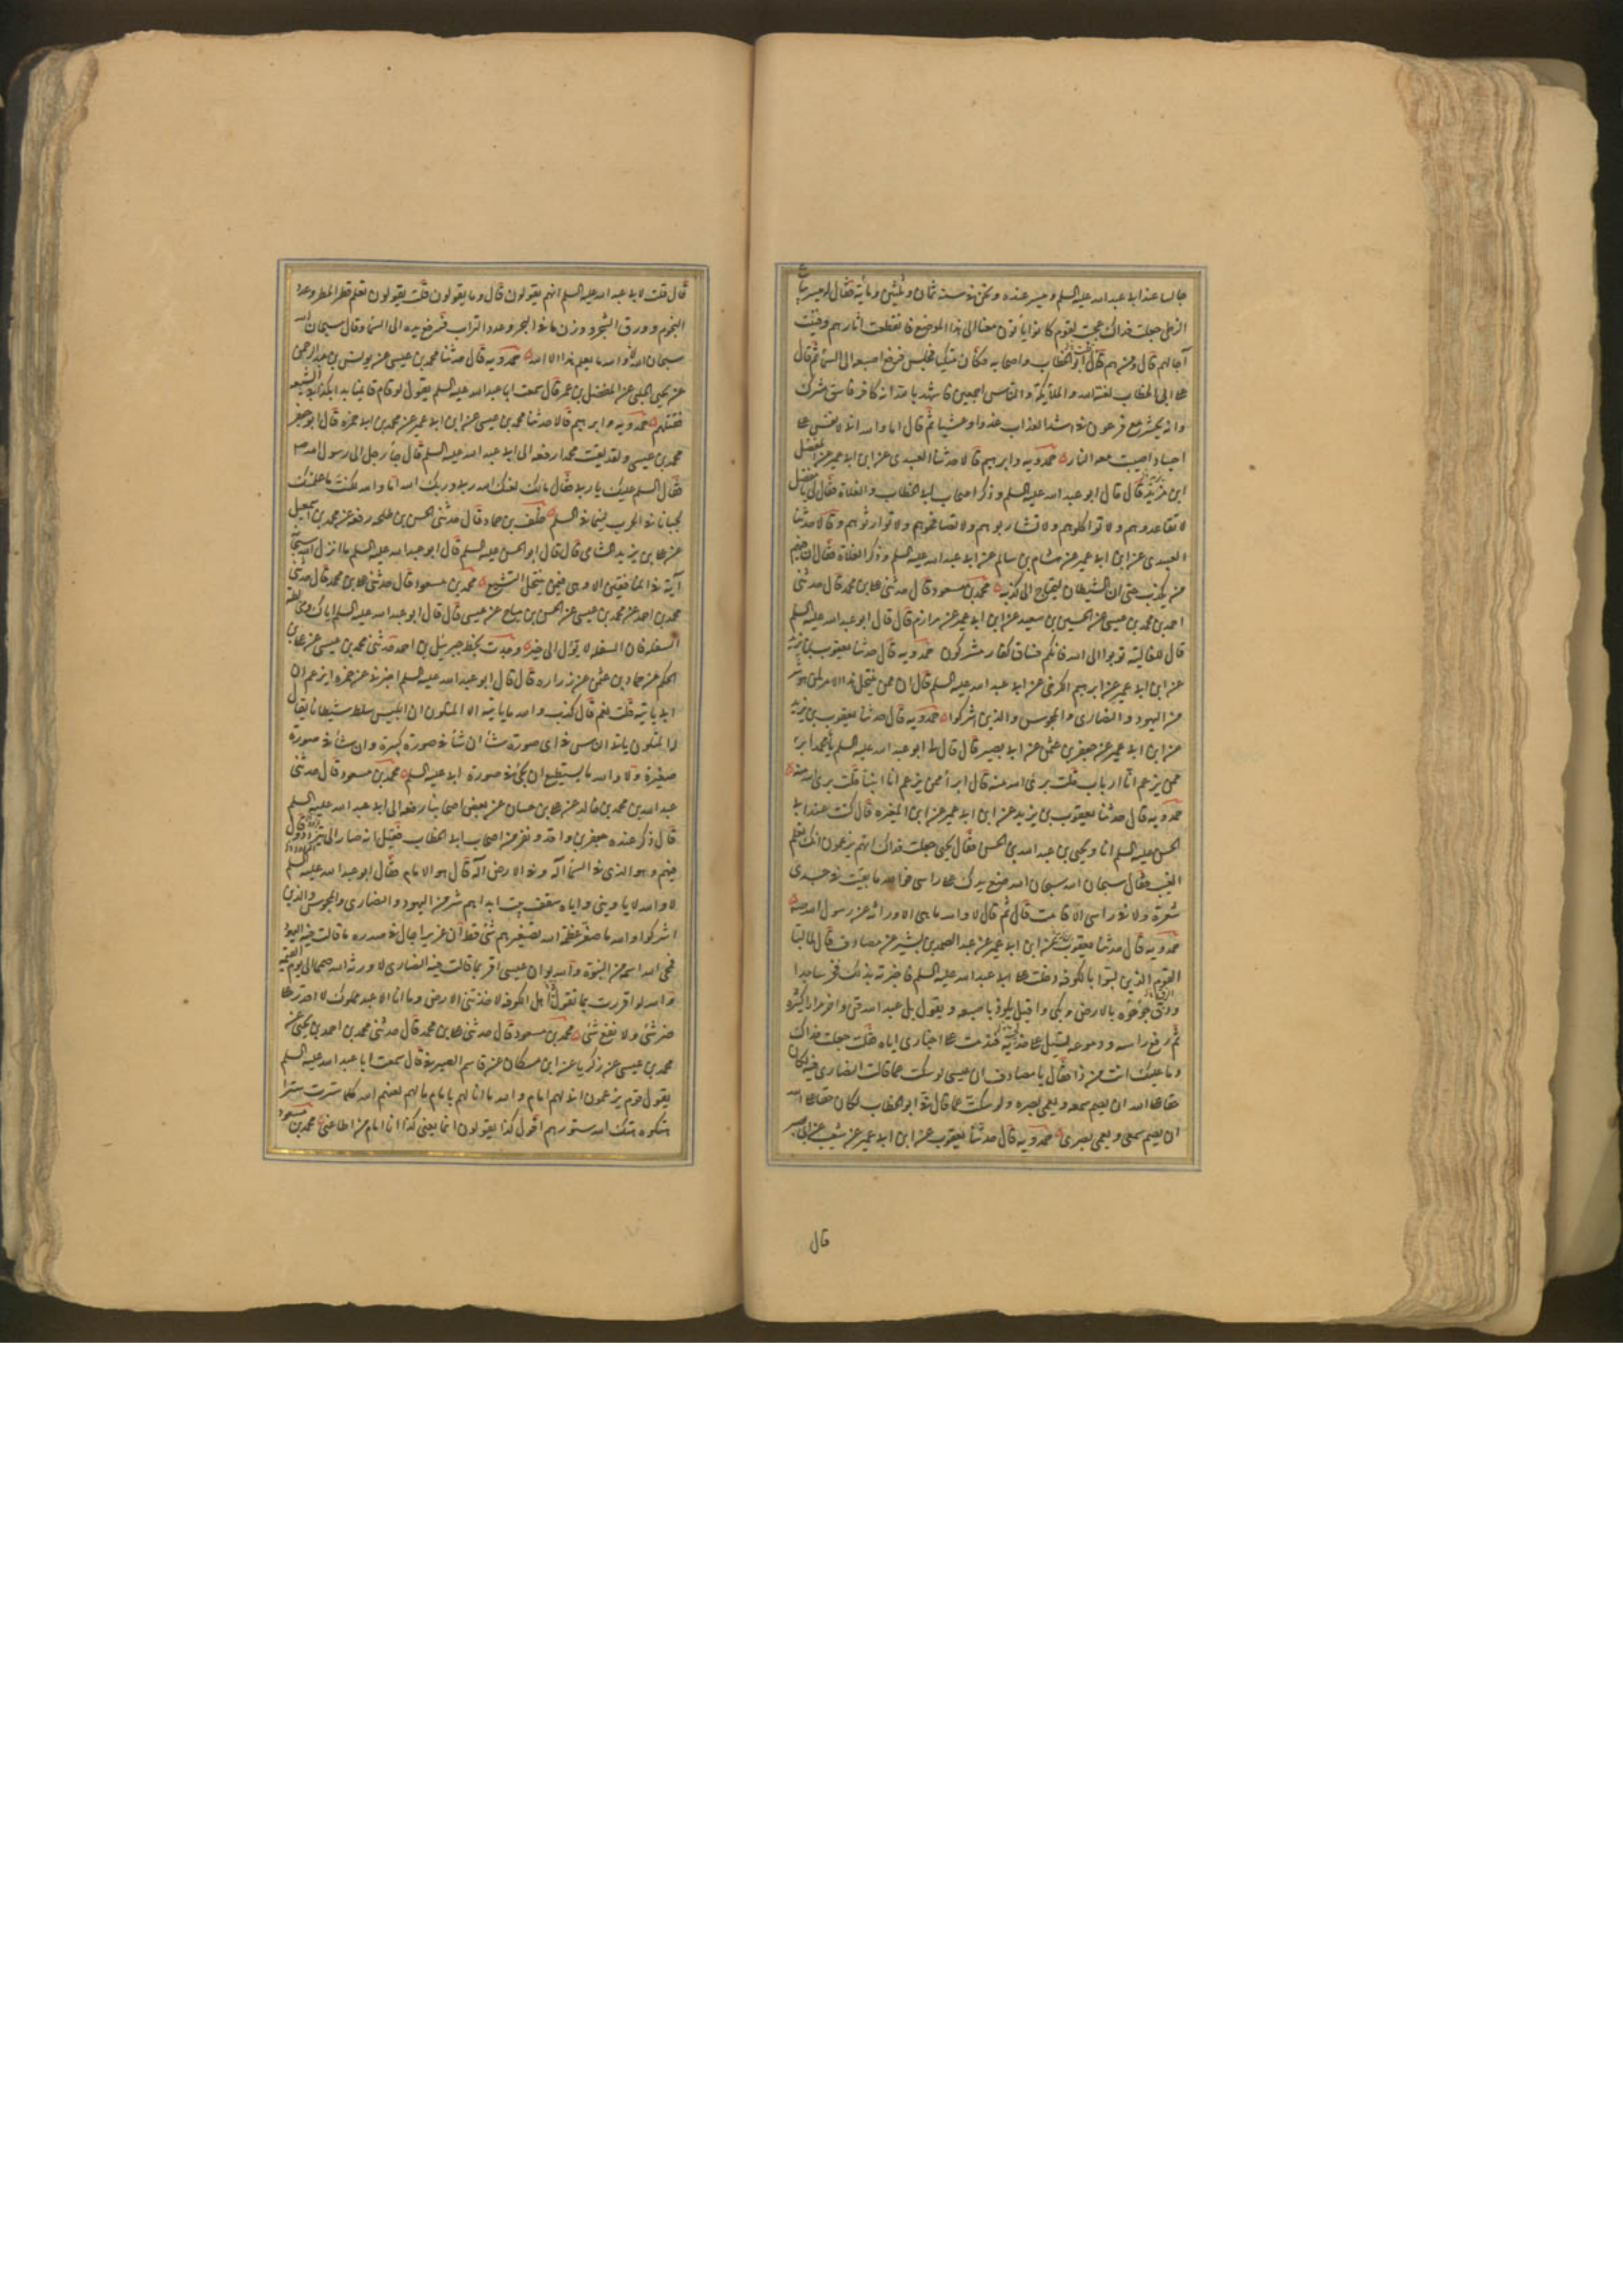 جالسا عند ابي عبد الله عليه السلم وميسر عنده ونحن في سنة ثمان وثلثين ومأية فقال له ميسر بياع
الزطي جعلت فداك عجبت لقوم كانوا يأتون معنا الى هذا الموضع فانقطعت اثارهم وفنيت
آجالهم قال ومن هم قلت ابو الخطاب واصحابه وكان متكيا فجلس فرفع اصبعه الى السماء ثم قال
على ابي الخطاب لعنة الله والملايكة والناس اجمعين فاشهد بالله انه كافر فاسق مشرك
وانه يحشر مع فرعون في اشد العذاب غدوا وعشيا ثم قال اما والله اني لانفس على
اجساد اصيبت معه النار حمدويه وابرهيم قالا حدثنا العبيدي عن ابن ابي عمير عن المفضل
ابن مزيد قال قال ابو عبد الله عليه السلم وذكر اصحاب ابي الخطاب والغلاة فقال لي يا مفضل
لا تقاعدوهم ولا تواكلوهم ولا تشاربوهم ولا تصافحوهم ولا توارثوهم وقالا حدثنا
العبيدي عن ابن ابي عمير عن هشام بن سالم عن ابي عبد الله عليه السلم وذكر الغلاة فقال ان فيهم
من يكذب حتى ان الشيطان ليحتاج الى كذبه محمد بن مسعود قال حدثني علي بن محمد قال حدثني
احمد بن محمد بن عيسى عن الحسين بن سعيد عن ابن ابي عمير عن مرازم قال قال ابو عبد الله عليه السلم
قال للغالية توبوا الى الله فانكم فساق كفار مشركون حمدويه قال حدثنا يعقوب بن يزيد
عن ابن ابي عمير عن ابرهيم الكرخي عن ابي عبد الله عليه السلم قال ان ممن ينتحل هذا الامر لمن هو شر
من اليهود والنصارى والمجوس والذين اشركوا حمدويه قال حدثنا يعقوب بن يزيد
عن ابن ابي عمير عن جعفر بن عثمن عن ابي بصير قال قال لي ابو عبد الله عليه السلم يا با محمد ابرأ
ممن يزعم انا ارباب قلت برئ الله منه قال ابرأ ممن يزعم انا انبيأ قلت برئ الله منه
حمدويه قال حدثنا يعقوب بن يزيد عن ابن ابي عمير عن ابن المغيرة قال كنت عند ابي
الحسن عليه السلم انا ويحيى بن عبد الله بن الحسن فقال يحيى جعلت فداك انهم يزعمون انك تعلم
الغيب فقال سبحان الله سبحان الله ضع يدك على راسي فوالله ما بقيت في جسدي
شعرة ولا في راسي الا قامت قال ثم قال لا والله ما هي الا وراثة عن رسول الله ص
حمدويه قال حدثنا يعقوب عن ابن ابي عمير عن عبد الصمد بن بشير عن مصادف قال لما لبا
القوم الذين لبوا بالكوفة دخلت على ابي عبد الله عليه السلم فاخبرته بذلك فخر ساجدا
ودق جؤجؤه بالارض وبكى واقبل يلوذ باصبعه ويقول بل عبد الله قن داخر مرارا كثيرة
ثم رفع راسه ودموعه تسيل على لحيته فندمت على اخباري اياه فقلت جعلت فداك
وما عليك انت من ذا فقال يا مصادف ان عيسى لو سكت عما قالت النصارى فيه لكان
حقا على الله ان يصم سمعه ويعمي بصره ولو سكت عما قال في ابو الخطاب لكان حقا على الله
ان يصم سمعي ويعمي بصري حمدويه قال حدثنا يعقوب عن ابن ابي عمير عن شعيب عن ابي بصير
قال
قال قلت لابي عبد الله عليه السلم انهم يقولون قال وما يقولون قلت يقولون تعلم قطر المطر وعدد
النجوم وورق الشجر ووزن ما في البحر وعدد التراب فرفع يده الى السماء وقال سبحان الله
سبحان الله لا والله ما يعلم هذا الا الله حمدويه قال حدثنا محمد بن عيسى عن يونس بن عبد الرحمن
عن يحيى الحلبي عن المفضل بن عمر قال سمعت ابا عبد الله عليه السلم يقول لو قام قائمنا بدأ بكذابي الشيعة
فقتلهم حمدويه وابرهيم قالا حدثنا محمد بن عيسى عن ابن ابي عمير عن محمد بن ابي حمزة قال ابو جعفر
محمد بن عيسى ولقد لقيت محمدا رفعه الى ابي عبد الله عليه السلم قال جاء رجل الى رسول الله ص
فقال السلم عليك يا ربي فقال مالك لعنك الله ربي وربك الله اما والله لكنت ما علمتك
لجبانا في الحرب لئيما في السلم خلف بن حماد قال حدثني الحسن بن طلحة رفعه عن محمد بن اسمعيل
عن علي بن يزيد الشامي قال قال ابو الحسن عليه السلم قال ابو عبد الله عليه السلم ما انزل الله سبحانه
آية في المنافقين الا وهي فيمن ينتحل التشيع محمد بن مسعود قال حدثني علي بن محمد قال حدثني
محمد بن احمد عن محمد بن عيسى عن الحسن بن مياح عن عيسى قال قال ابو عبد الله عليه السلم اياك ومخالطة
السفلة فان السفلة لا يؤل الى خير وجدت بخط جبرئيل بن احمد حدثني محمد بن عيسى عن علي بن
الحكم عن حماد بن عثمن عن زرارة قال قال ابو عبد الله عليه السلم اخبرني عن حمزة ايزعم ان
ابي ياتيه قلت نعم قال كذب والله ما ياتيه الا المتكون ان ابليس سلط شيطانا يقال
له المتكون ياتي الناس في اي صورة شاء ان شاء في صورة كبيرة وان شاء في صورة
صغيرة ولا والله ما يستطيع ان يجئ في صورة ابي عليه السلم محمد بن مسعود قال حدثني
عبد الله بن محمد بن خالد عن علي بن حسان عن بعض اصحابنا رفعه الى ابي عبد الله عليه السلم
قال ذكر عنده جعفر بن واقد ونفر من اصحاب ابي الخطاب فقيل انه صار الى يتردد وقال
فيهم وهو الذي في السماء اله وفي الارض اله قال هو الامام فقال ابو عبد الله عليه السلم
لا والله لا ياويني واياه سقف بيت ابدا هم شر من اليهود والنصارى والمجوس والذين
اشركوا والله ما صغر عظمة الله تصغيرهم شئ قط ان عزيرا جال في صدره ما قالت فيه اليهود
فمحى الله اسمه من النبوة والله لو ان عيسى اقر بما قالت فيه النصارى لاورثه الله صمما الى يوم القيمة
والله لو اقررت بما يقول في اهل الكوفة لاخذتني الارض وما انا الا عبد مملوك لا اقدر على
ضر شئ ولا نفع شئ محمد بن مسعود قال حدثني علي بن محمد قال حدثني محمد بن احمد بن يحيى عن
محمد بن عيسى عن زكريا عن ابن مسكان عن قاسم الصيرفي قال سمعت ابا عبد الله عليه السلم
يقول قوم يزعمون اني لهم امام والله ما انا لهم بامام مالهم لعنهم الله كلما سترت سترا
هتكوه هتك الله ستورهم اقول كذا يقولون انما يعني كذا انا امام من اطاعني محمد بن مسعود